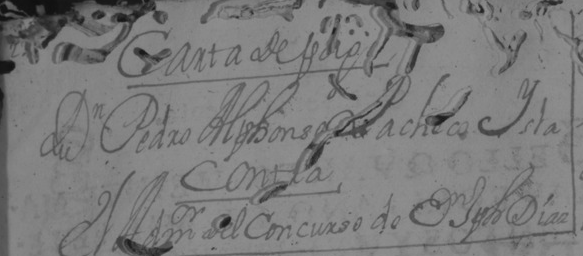 Carta de pdio
Dn Pedro Alphonso Pacheco Ysla
Contra
El Admor del Concurso de Dn Díaz